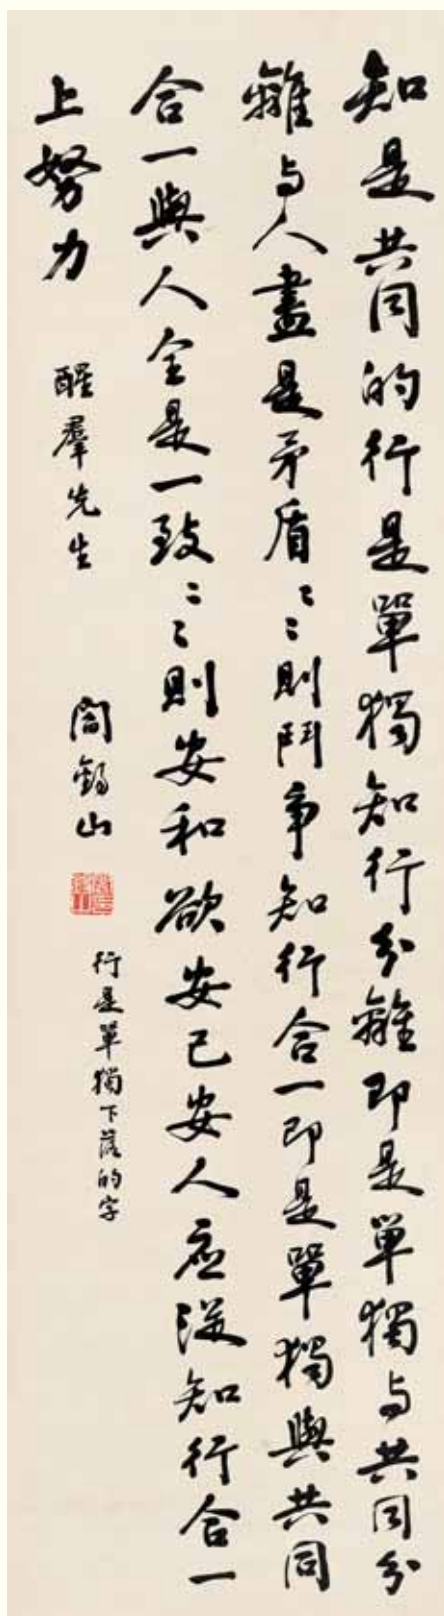 知是共同的行是單獨知行分離即是單獨与共同分
離与人盡是矛盾〻〻則鬥爭知行合一即是單獨與共同
合一與人全是一致〻〻則安和欲安己安人应從知行合一
上努力
醒羣先生
閻錫山
行是單獨下落的字